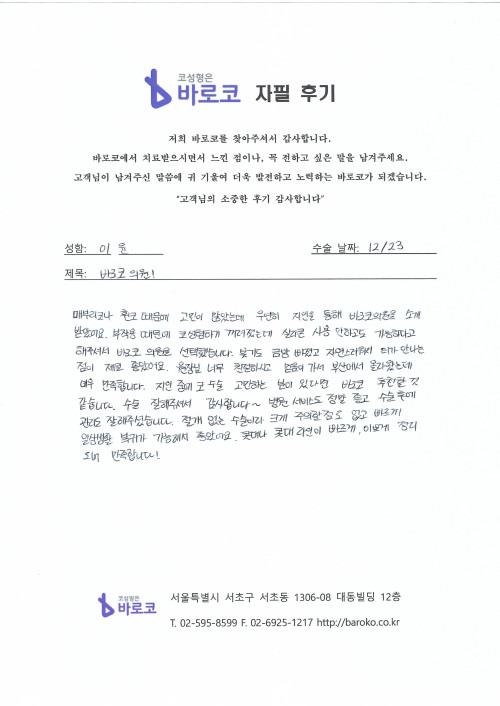 코성형은
바로코 자필 후기
저희 바로코를 찾아주셔서 감사합니다.
바로코에서 치료받으시면서 느낀 점이나, 꼭 전하고 싶은 말을 남겨주세요.
고객님이 남겨주신 말씀에 귀 기울여 더욱 발전하고 노력하는 바로코가 되겠습니다.
"고객님의 소중한 후기 감사합니다"
성함: 이 윤 수술 날짜: 12/23
제목: 바로코 의원!
매부리코나 휜코 때문에 고민이 많았는데 우연히 지인을 통해 바로코의원을 소개
받았어요. 부작용 때문에 코성형하기 꺼려졌는데 실리콘 사용 안하고도 가능하다고
해주셔서 바로코 의원을 선택했습니다. 붓기도 금방 빠졌고 자연스러워서 티가 안나는
점이 제일 좋았어요. 원장님 너무 친절하시고 믿음이 가서 부산에서 올라왔는데
매우 만족합니다. 지인 중에 코 수술 고민하는 분이 있다면 바로코 추천할 것
같습니다. 수술 잘해주셔서 감사합니다~ 병원 서비스도 정말 좋고 수술 후에
관리도 잘해주셨습니다. 절개 없는 수술이라 크게 주의할 점도 없고 빠르게
일상생활 복귀가 가능해서 좋았어요. 콧대나 콧대 라인이 바르게, 이쁘게 정리
되어 만족합니다!
코성형은
바로코
서울특별시 서초구 서초동 1306-08 대동빌딩 12층
T. 02-595-8599 F. 02-6925-1217 http://baroko.co.kr